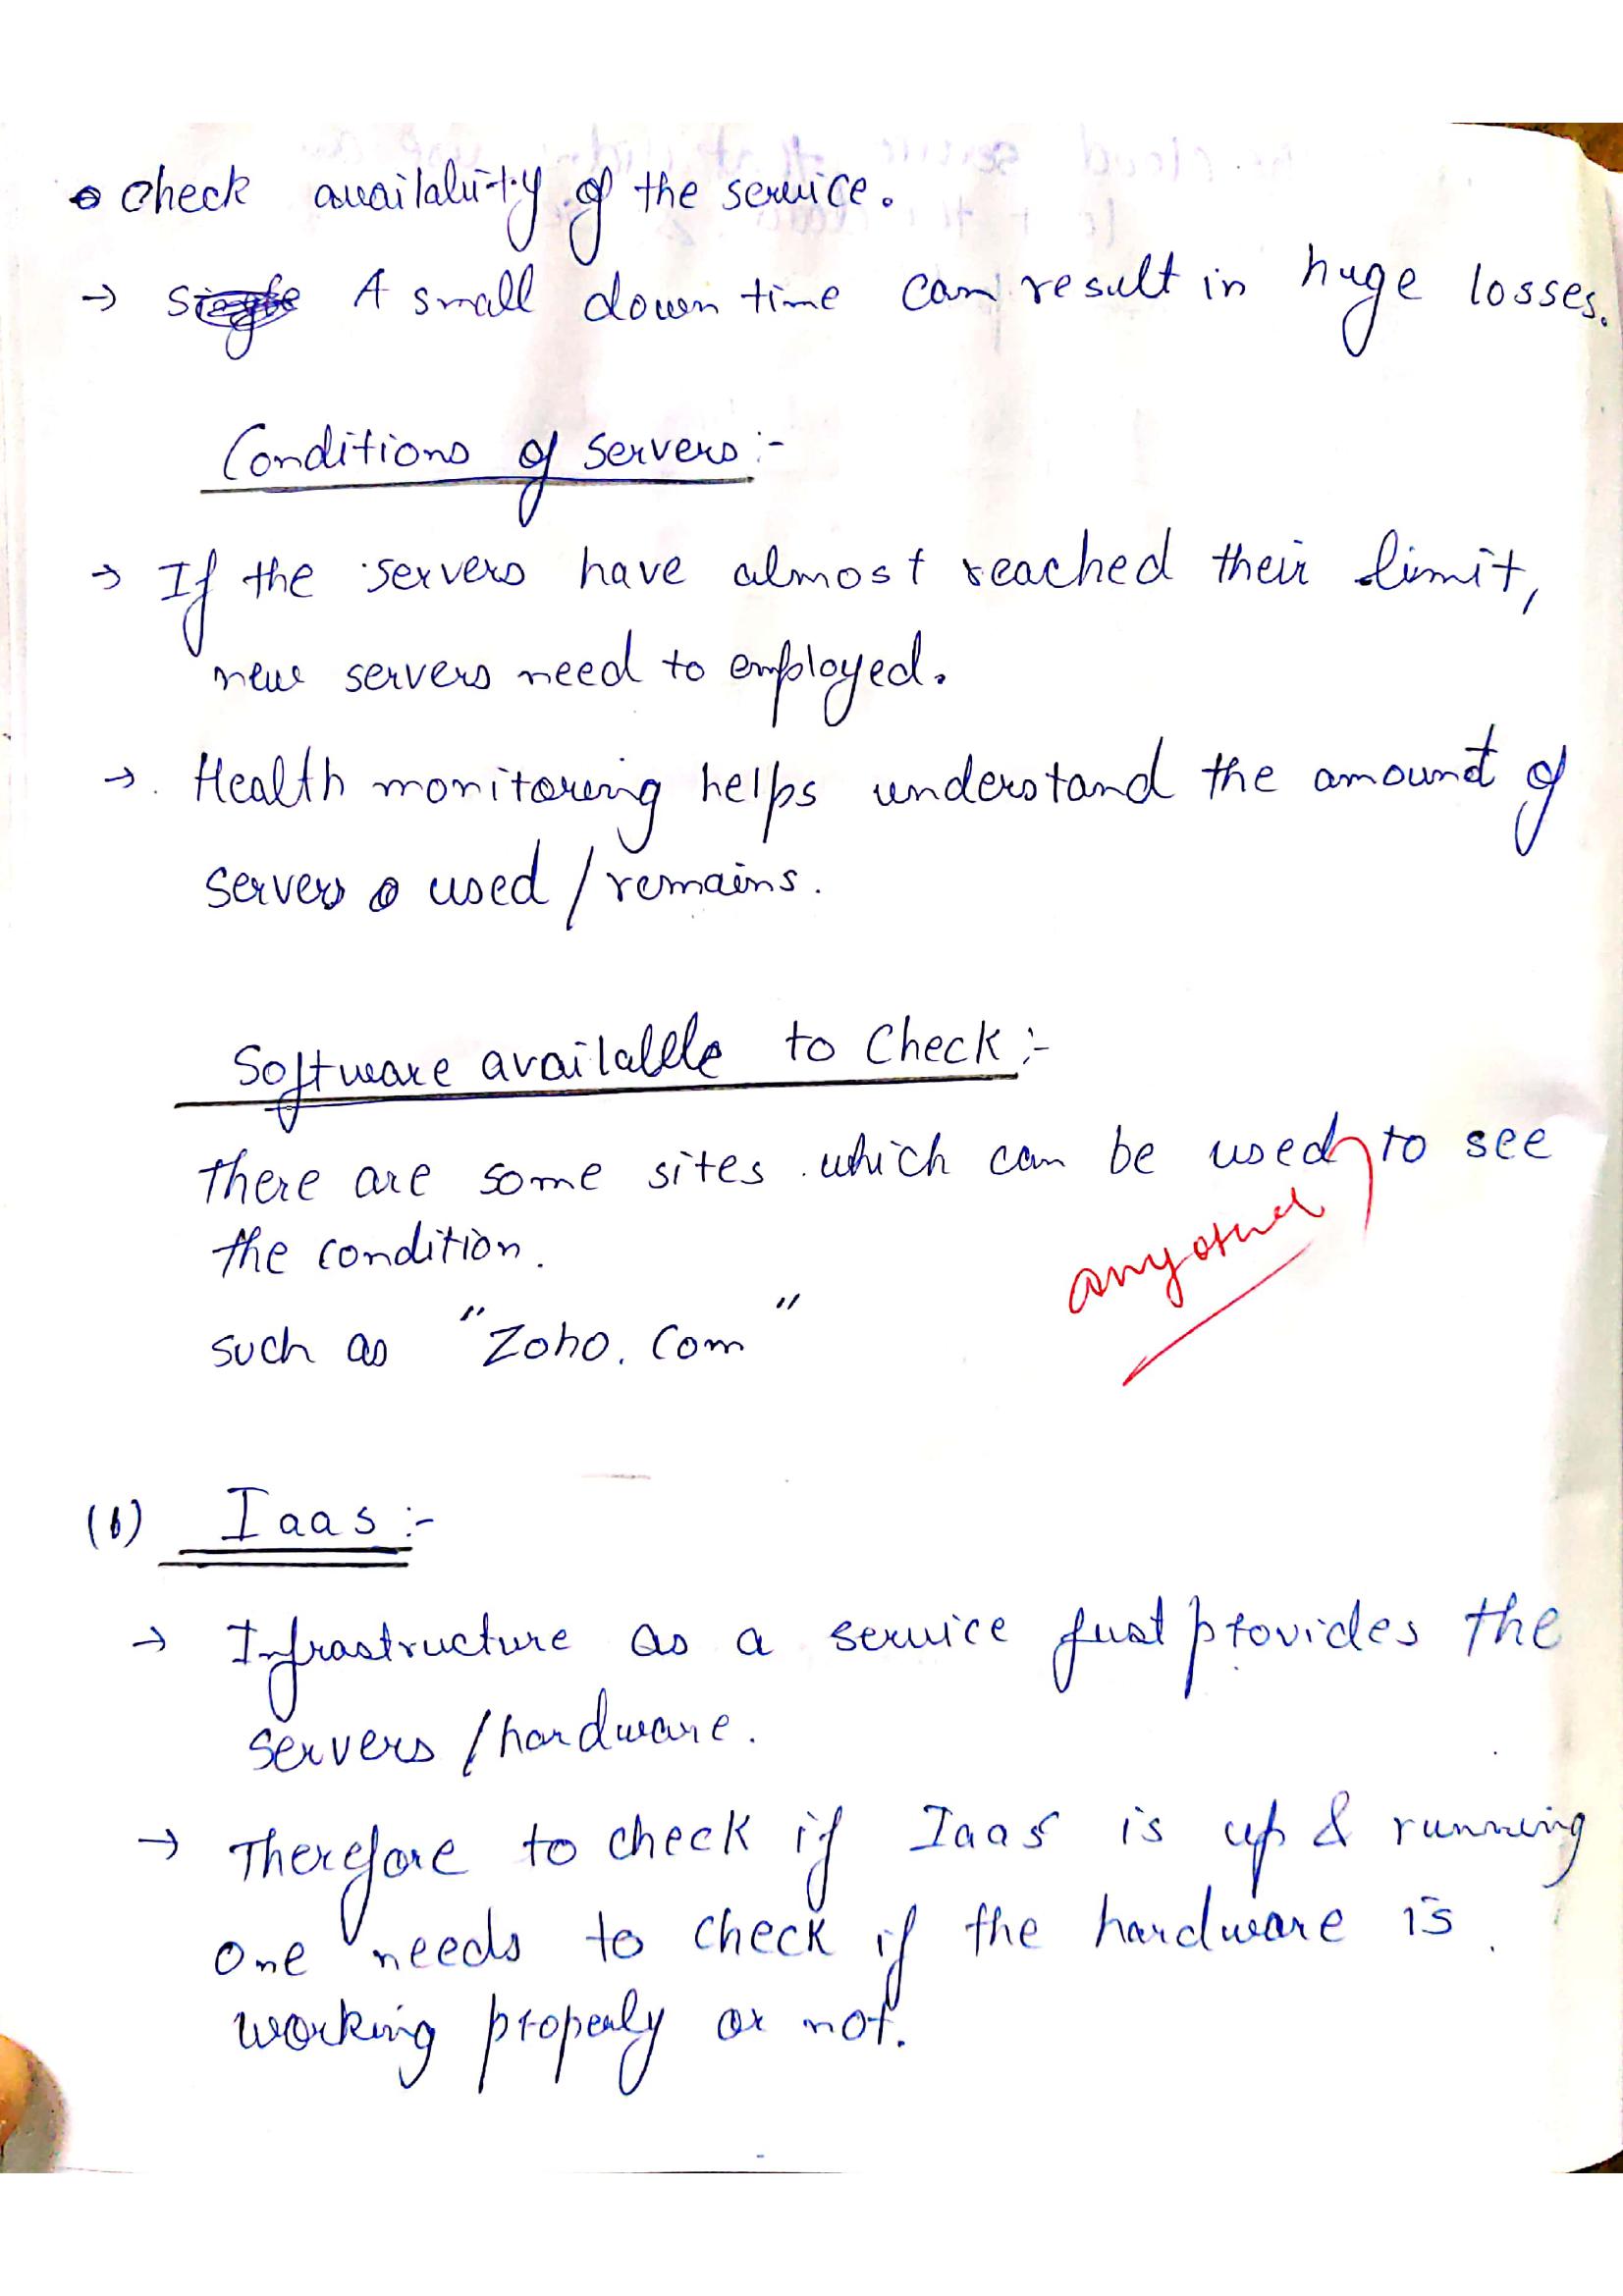 • Check availability of the service.
→ A small down time can result in huge losses.
Conditions of servers :-
→ If the servers have almost reached their limit,
new servers need to employed.
→ Health monitoring helps understand the amount of
servers used / remains.
Software available to Check :-
There are some sites which can be used to see
any other
the condition.
such as "Zoho. Com"
(b) Iaas :-
→ Infrastructure as a service just provides the
servers / hardware.
→ Therefore to check if Iaas is up & running
one needs to check if the hardware is
working properly or not.